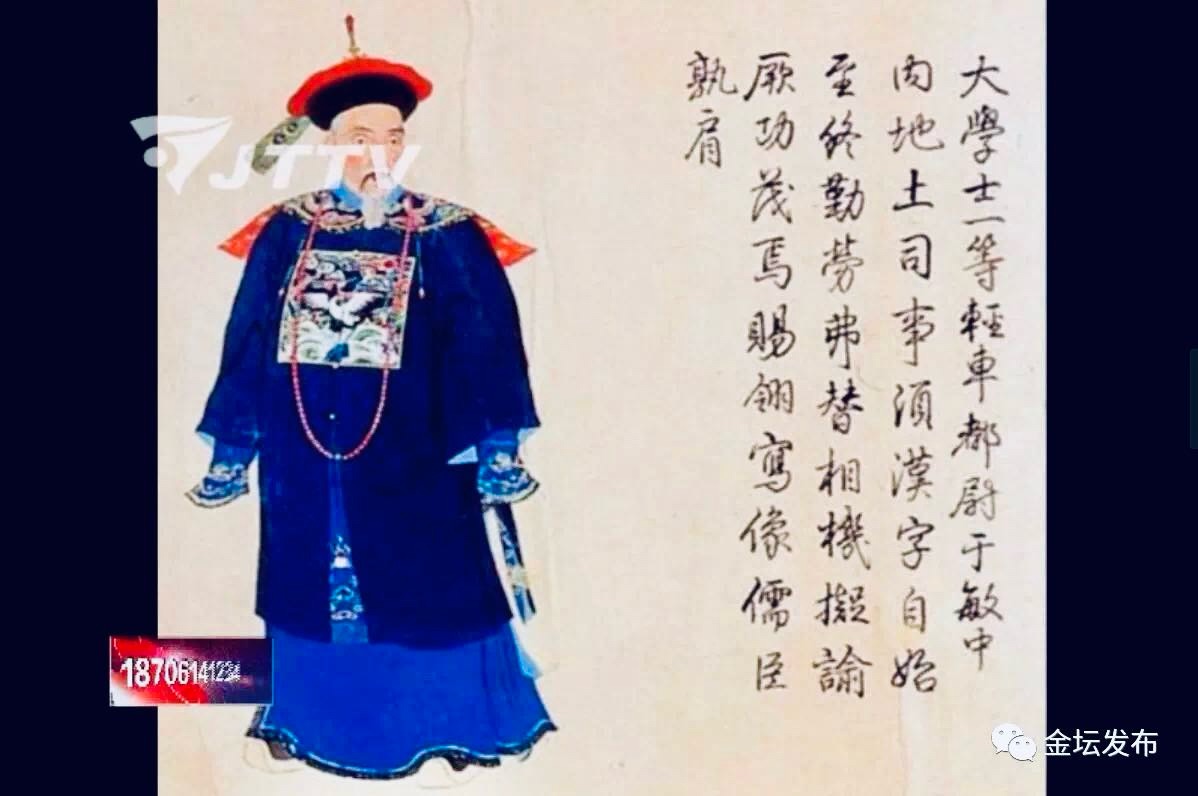 大學士一等輕車都尉于敏中
内地土司事須漢字自始
至終勤勞弗替相機擬諭
厥功茂焉賜翎寫像儒臣
孰肩
JTTV
18706141234
金坛发布